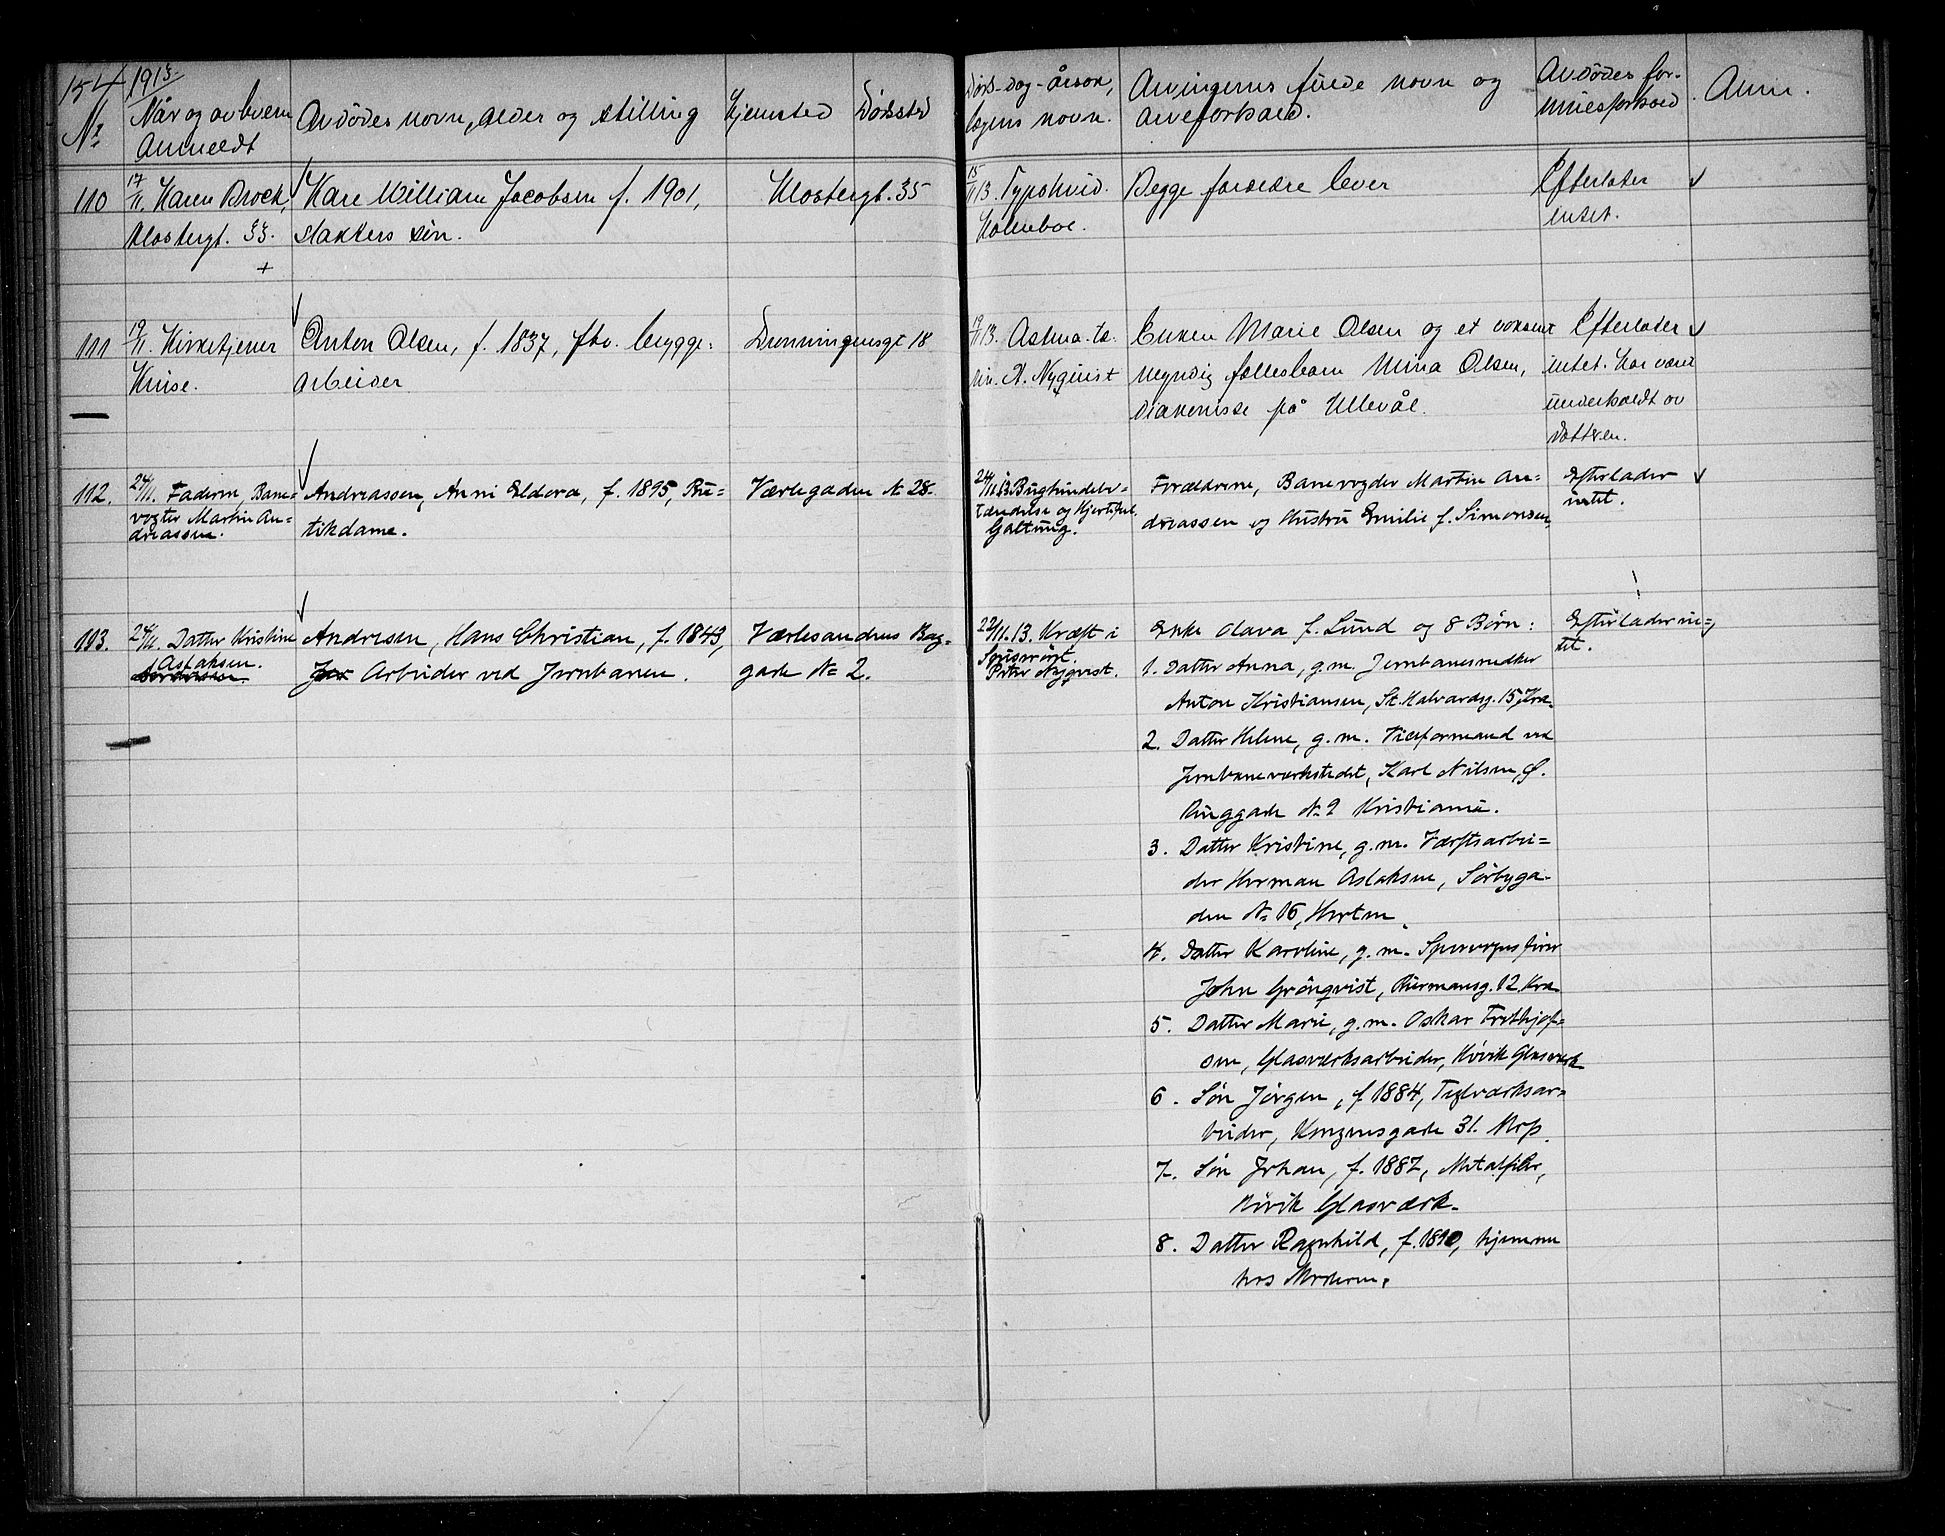 154 1913.
No
Når og av hvem
Anmeldt
Avdødes navn, alder og stilling
Hjemsted
Dødssted
Døds-dag-årsak,
lægens navn.
Arvingernes fulde navn og
arveforhold.
Avdødes for-
muesforhold
Anm.
110
17/11. Karen Brock,
Klostergt. 33.
Kåre William Jacobsen f. 1901,
slakters søn.
Klostergt. 35
15/11 13. Typohvid.
Holmboe.
Begge forældre lever
Efterlater
intet.
111
19/11. Kirketjener
Kruse.
Anton Olsen, f. 1837, fhv. brygge-
arbeider
Dronningensgt 18
19/11 13. Astma.
A. Nyquist
Enken Marie Olsen og et voksent
myndig fællesbarn Mina Olsen,
diakonisse på Ullevål.
Efterlater
intet. Har været
underholdt av
datteren.
112.
24/11. Faderen, Bane-
vogter Martin An-
dreassen.
Andreassen, Anni Eldora, f. 1895, Bu=
tikdame.
Værlegaden No 28.
24/11.13. Bughindebe-
tændelse og Hjertefeil.
Galtung.
Forældrene, Banevogter Martin An=
dreassen og Hustru Emilie f. Simonsen,
Efterlader
intet.
113.
24/11. Datter Kristine
Aslaksen.
Andresen, Hans Christian, f. 1843,
Jer Arbeider ved Jernbanen.
Værlesandens Bag-
gade No 2.
22/11.13. Kræft i
Spiserøret.
Peter Nyqvist.
Enke Olava f. Lund og 8 Børn:
1. Datter Anna, g.m. Jernbanesnedker
Anton Kristiansen, St. Halvardsg. 15, Kra.
2. Datter Helene, g.m. Viceformand ved
Jernbaneverkstedet, Karl Nilsen, Ø.
Ringgade No 9 Kristiania.
3. Datter Kristine, g.m. Værftsarbei=
der Herman Aslaksen, Sørbyga-
den No 16, Horten.
4. Datter Karoline, g.m. Sporvognsfører
John Grönqvist, 12 Kra
5. Datter Marie, g.m. Oskar Fridthjof=
sen, Glasværksarbeider, Høvik Glasværk
6. Søn Jørgen, f 1884, Teglværksar=
beider, Kongensgade 31. Mss.
7. Søn Johan, f. 1887, Metalfiler,
Høvik Glasværk.
8. Datter Ragnhild, f. 1890, hjemme
hos Moderen.
Efterlader in=
tet.